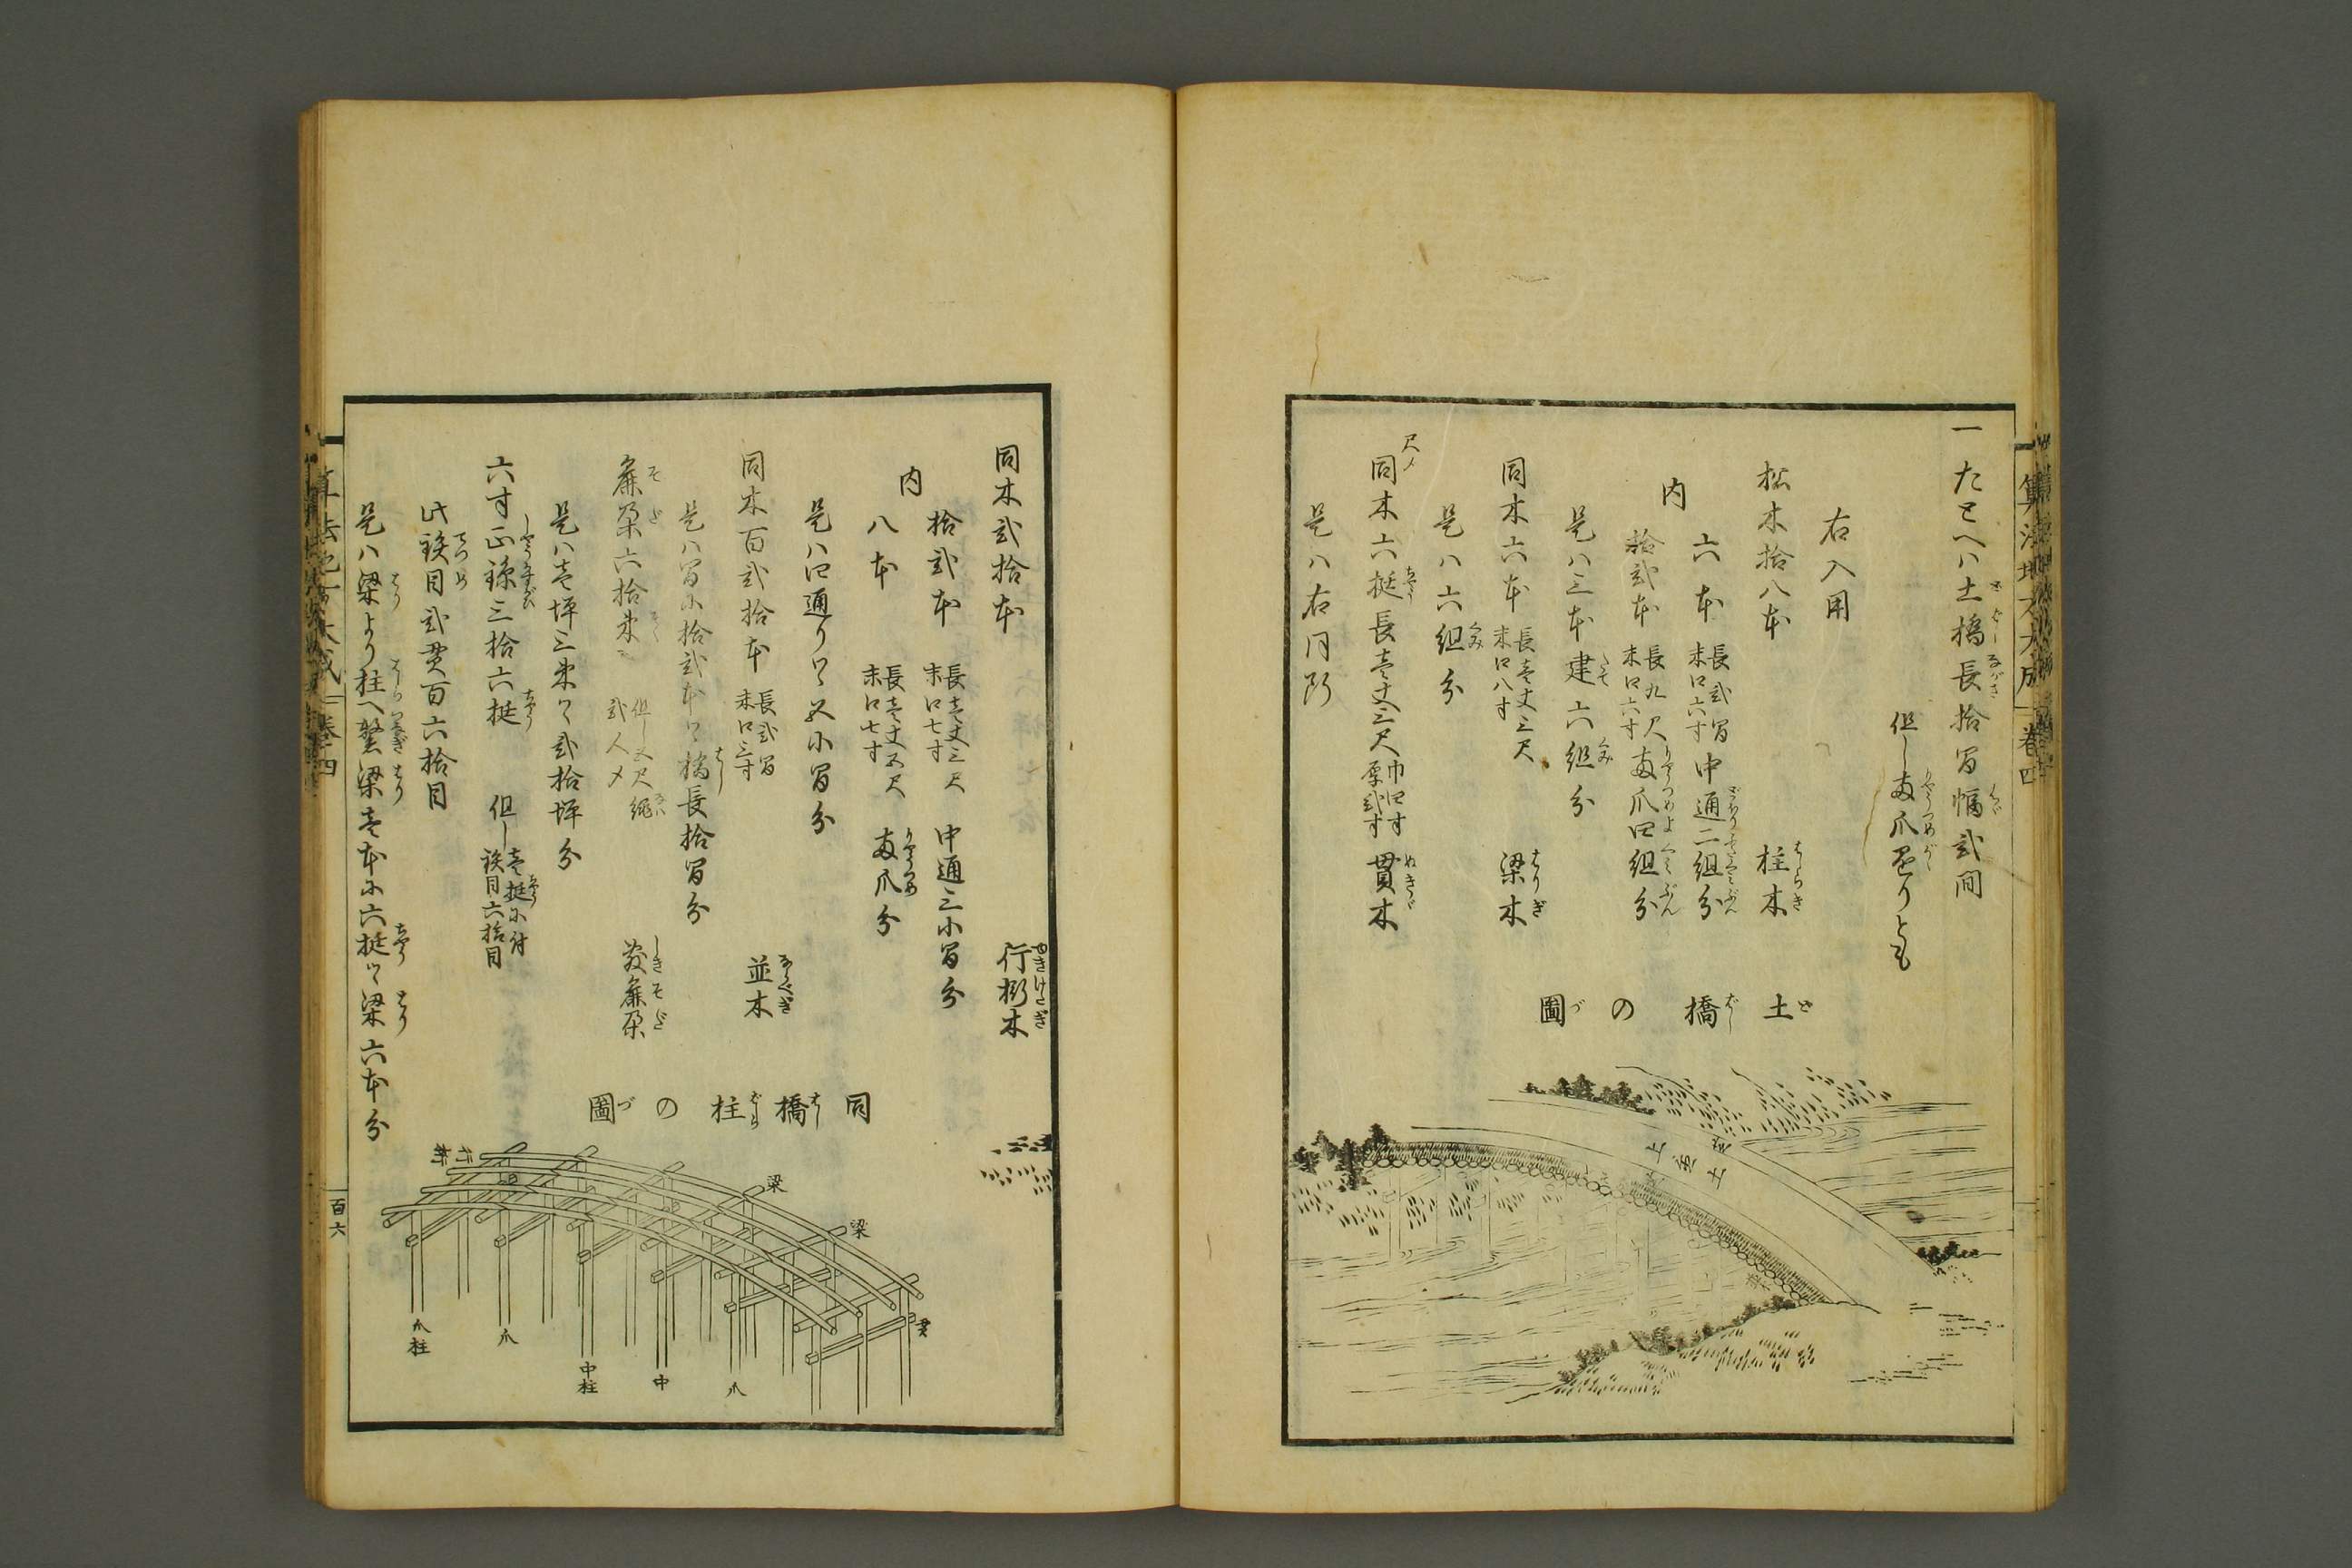 一 たとへハ土橋長拾間幅弐間
但し両爪
右入用
松木拾八本 柱木
内
六本 長弐間 末口六寸 中通二組分
拾弐本 長九尺 末口六寸 両爪四組分
是ハ三本建六組分
同木六本 長壱丈三尺 末口八寸 梁木
是ハ六組分
尺〆
同木六挺 長壱丈三尺 巾四寸 厚弐寸 貫木
是ハ右同断
土橋の圖
算法地方大成 巻四
同木弐拾本 行桁木
内
拾弐本 長壱丈三尺 末口七寸 中通三小間分
八本 長壱丈五尺 末口七寸 両爪分
是ハ四通りツヽ五小間分
同木百弐拾本 長弐間 末口三寸 並木
是ハ間ニ拾弐本ツヽ橋長拾間分
麁朶六拾束 但し五尺縄 弐人〆 敷麁朶
是ハ壱坪三束ツヽ弐拾坪分
六寸正鎹三拾六挺 但し壱挺ニ付 鉄目六拾目
此鉄目弐貫百六拾目
是ハ梁より柱へ繋梁壱本ニ六挺ツヽ梁六本分
同橋柱の圖
梁
梁
貫
爪柱
爪
中柱
中
爪
算法地方大成 巻四
百六